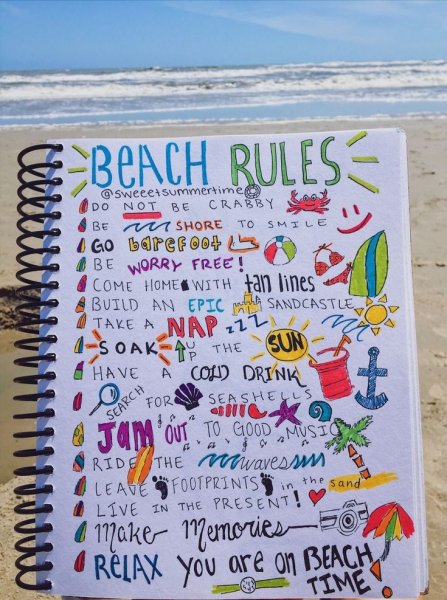 BEACH RULES
@sweeetsummertime
DO NOT BE CRABBY
BE SHORE TO SMILE
GO barefoot
BE WORRY FREE!
COME HOME WITH tan lines
BUILD AN EPIC SANDCASTLE
TAKE A NAP zzz
SOAK UP THE SUN
HAVE A COLD DRINK
SEARCH FOR SEASHELLS
JAM OUT TO GOOD MUSIC
RIDE THE waves
LEAVE FOOTPRINTS in the sand
LIVE IN THE PRESENT!
Make Memories
RELAX you are on BEACH TIME!